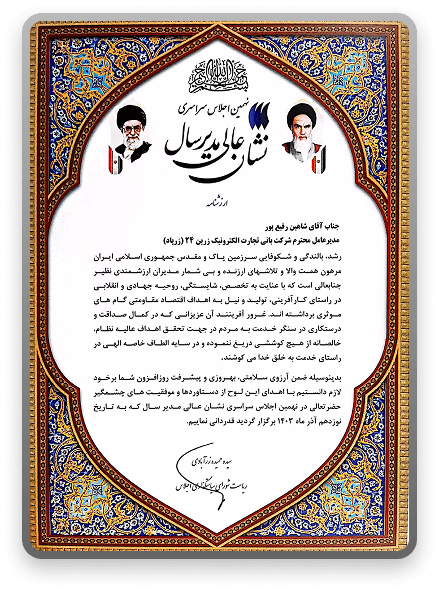 بسم الله الرحمن الرحیم
نهمین اجلاس سراسری
نشان عالی مدیر سال
ارزشنامه
جناب آقای شاهین رفیع پور
مدیرعامل محترم شرکت بانی تجارت الکترونیک زرین ۲۴ (زرپاد)
رشد، بالندگی و شکوفایی سرزمین پاک و مقدس جمهوری اسلامی ایران
مرهون همت والا و تلاشهای ارزنده و بی شمار مدیران ارزشمندی نظیر
جنابعالی است که با عنایت به تخصص، شایستگی، روحیه جهادی و انقلابی
در راستای کارآفرینی، تولید و نیل به اهداف اقتصاد مقاومتی گام های
موثری برداشته اند. غرور آفرینند آن عزیزانی که در کمال صداقت و
درستکاری در سنگر خدمت به مردم در جهت تحقق اهداف عالیه نظام،
خالصانه از هیچ کوششی دریغ ننموده و در سایه الطاف خاصه الهی در
راستای خدمت به خلق خدا می کوشند.
بدینوسیله ضمن آرزوی سلامتی، بهروزی و پیشرفت روزافزون شما برخود
لازم دانستیم با اهدای این لوح از دستاوردها و موفقیت های چشمگیر
حضرتعالی در نهمین اجلاس سراسری نشان عالی مدیر سال که به تاریخ
نوزدهم آذر ماه ۱۴۰۳ برگزار گردید قدردانی نماییم.
سیده حمیده زرآبادی
ریاست شورای سیاستگذاری اجلاس